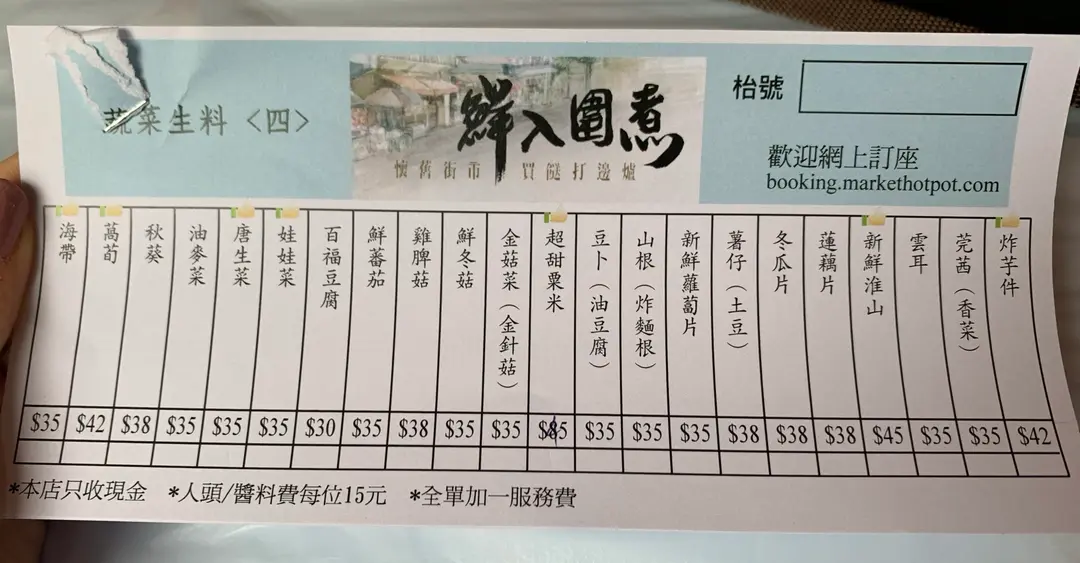 蔬菜生料〈四〉
鮮入圍煮
懷舊街市 買餸打邊爐
枱號
歡迎網上訂座
booking.markethotpot.com
海帶
萵荀
秋葵
油麥菜
唐生菜
娃娃菜
百福豆腐
鮮番茄
雞脾菇
鮮冬菇
金菇菜（金針菇）
超甜粟米
豆卜（油豆腐）
山根（炸麵根）
新鮮蘿蔔片
薯仔（土豆）
冬瓜片
蓮藕片
新鮮淮山
雲耳
芫茜（香菜）
炸芋件
$35 $42 $38 $35 $35 $35 $30 $35 $38 $35 $35 $85 $35 $35 $35 $38 $38 $38 $45 $35 $35 $42
*本店只收現金 *人頭/醬料費每位15元 *全單加一服務費